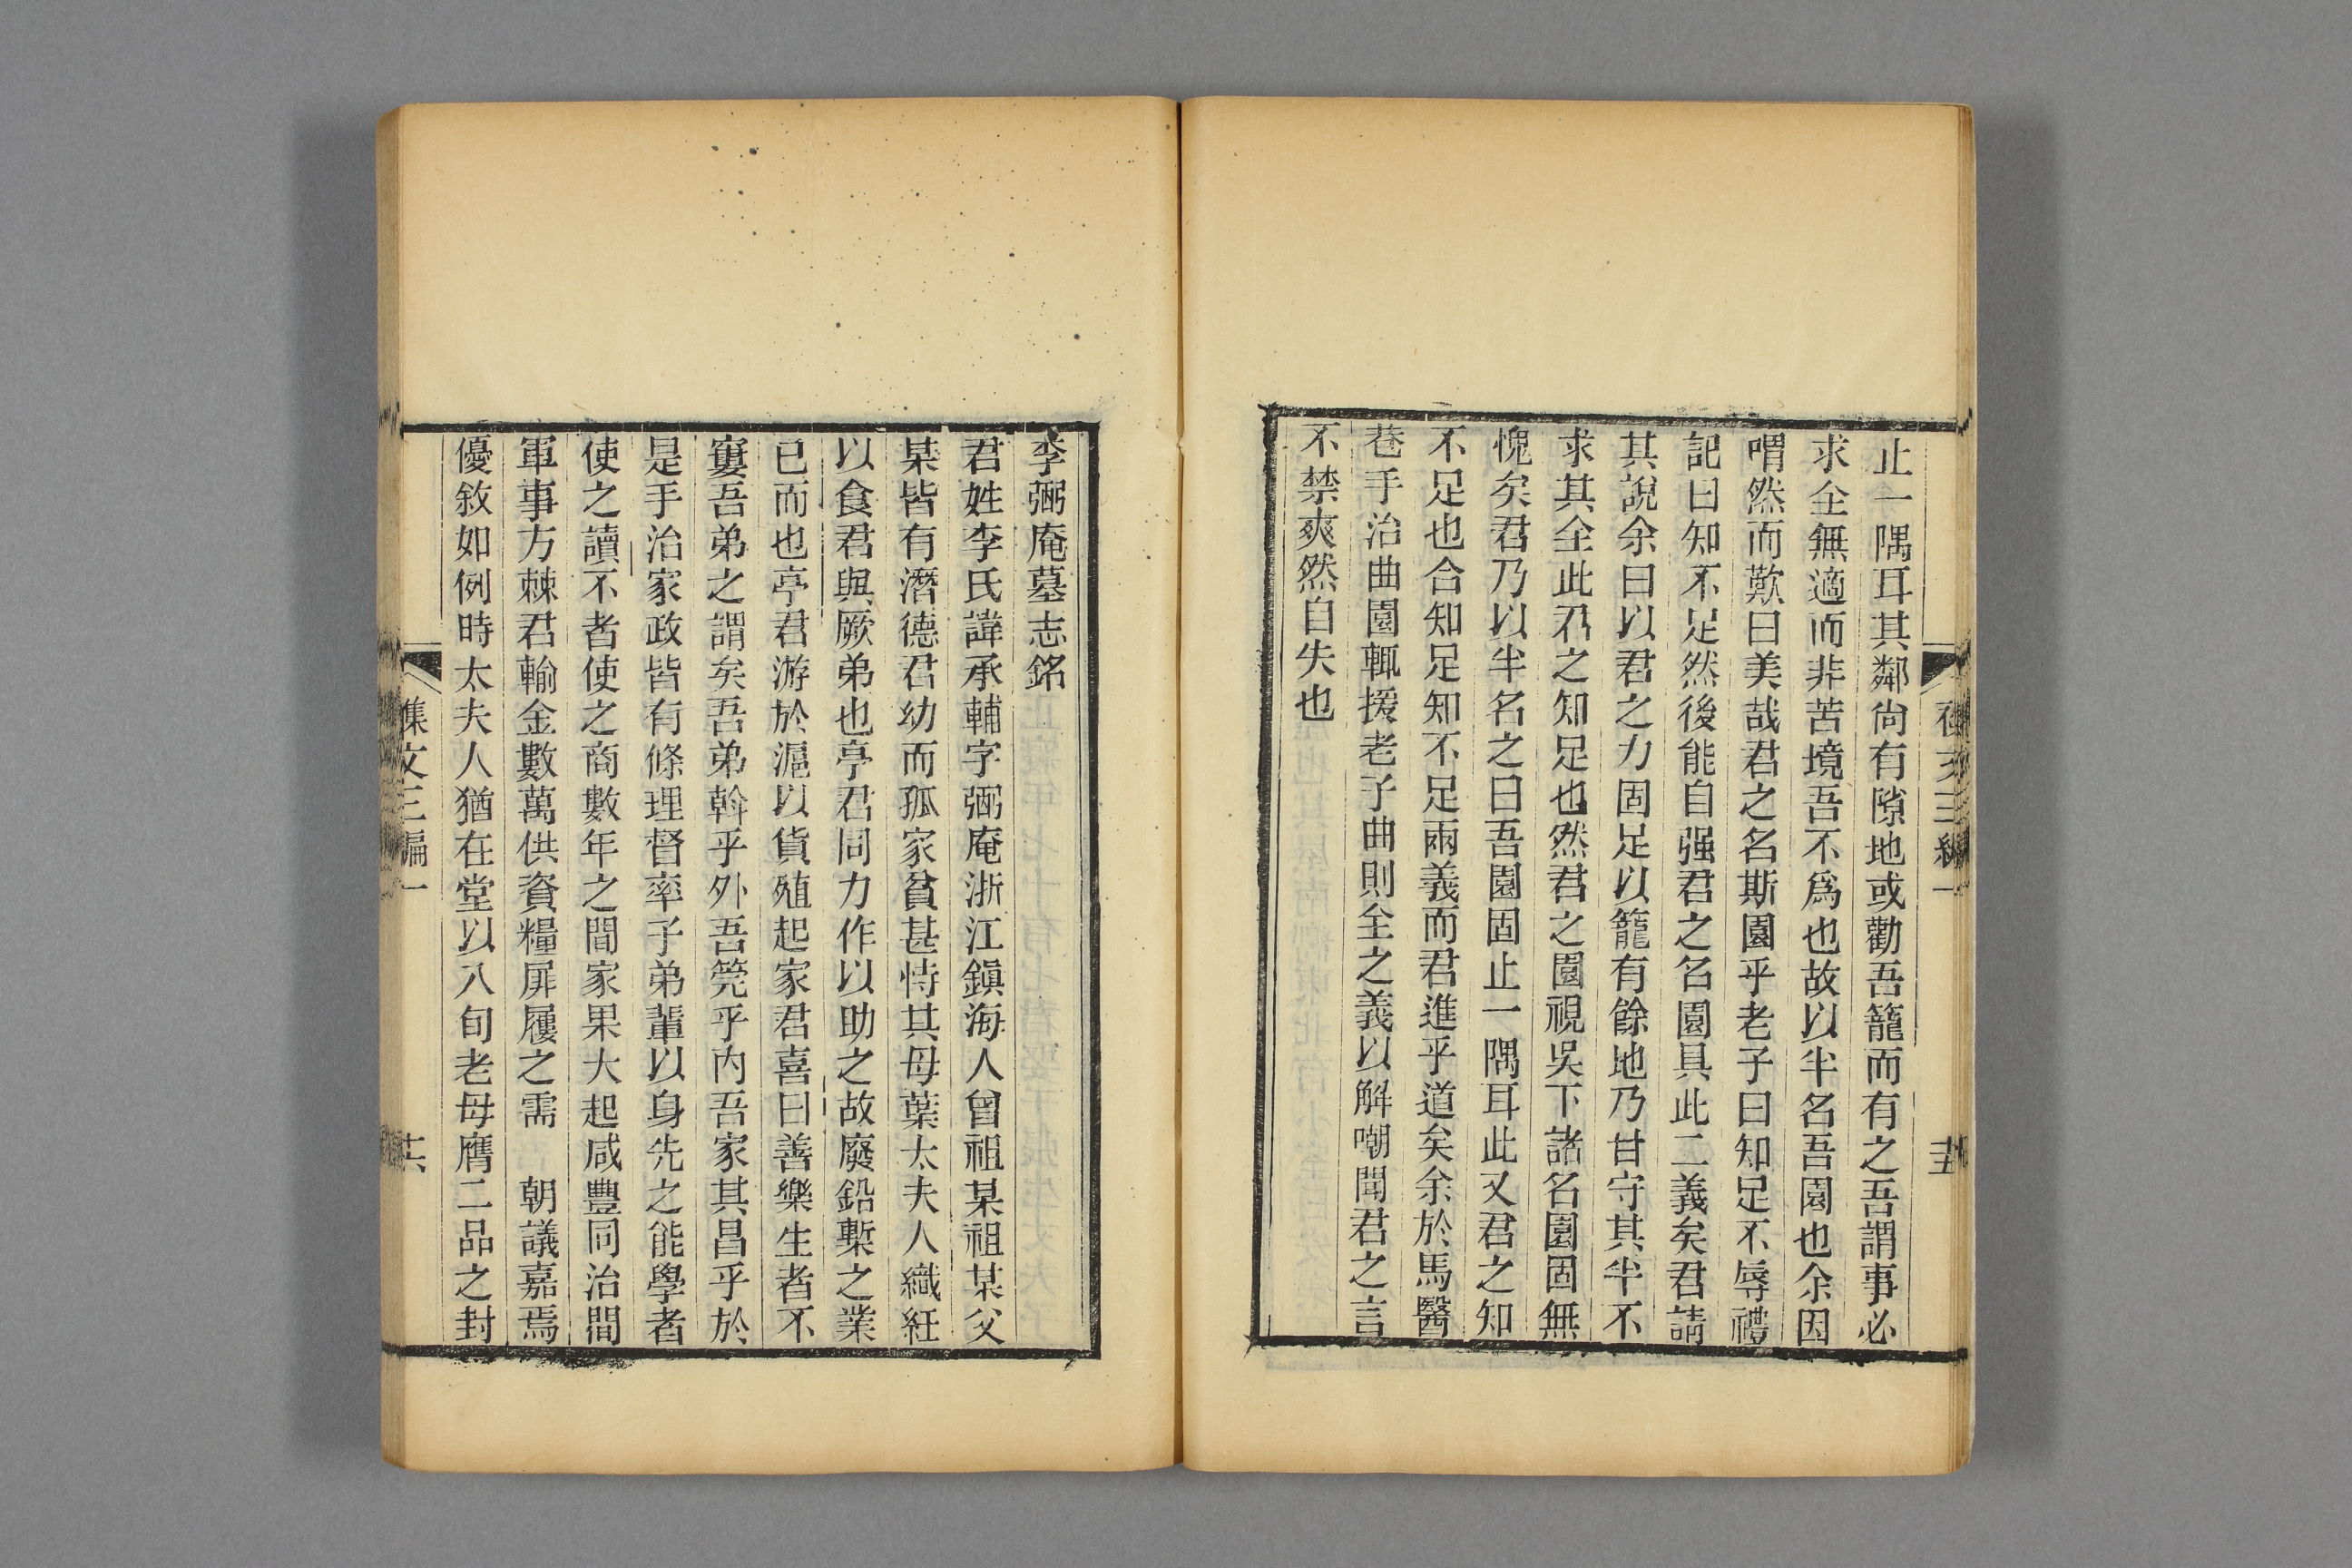 止一隅耳其鄰尙有隙地或勸吾籠而有之吾謂事必
求全無適而非苦境吾不爲也故以半名吾園也余因
喟然而歎曰美哉君之名斯園乎老子曰知足不辱禮
記曰知不足然後能自强君之名園具此二義矣君請
其說余曰以君之力固足以籠有餘地乃甘守其半不
求其全此君之知足也然君之園視吳下諸名園固無
愧矣君乃以半名之曰吾園固止一隅耳此又君之知
不足也合知足知不足兩義而君進乎道矣余於馬醫
巷手治曲園輒援老子曲則全之義以解嘲聞君之言
不禁爽然自失也
李弼庵墓志銘
君姓李氏諱承輔字弼庵浙江鎭海人曾祖某祖某父
某皆有潛德君幼而孤家貧甚恃其母葉太夫人織紝
以食君與厥弟也亭君同力作以助之故廢鉛槧之業
已而也亭君游於滬以貨殖起家君喜曰善樂生者不
窶吾弟之謂矣吾弟斡乎外吾筦乎內吾家其昌乎於
是手治家政皆有條理督率子弟輩以身先之能學者
使之讀不者使之商數年之間家果大起咸豐同治間
軍事方棘君輸金數萬供資糧屝屨之需　朝議嘉焉
優敘如例時太夫人猶在堂以八旬老母膺二品之封
集文三編一